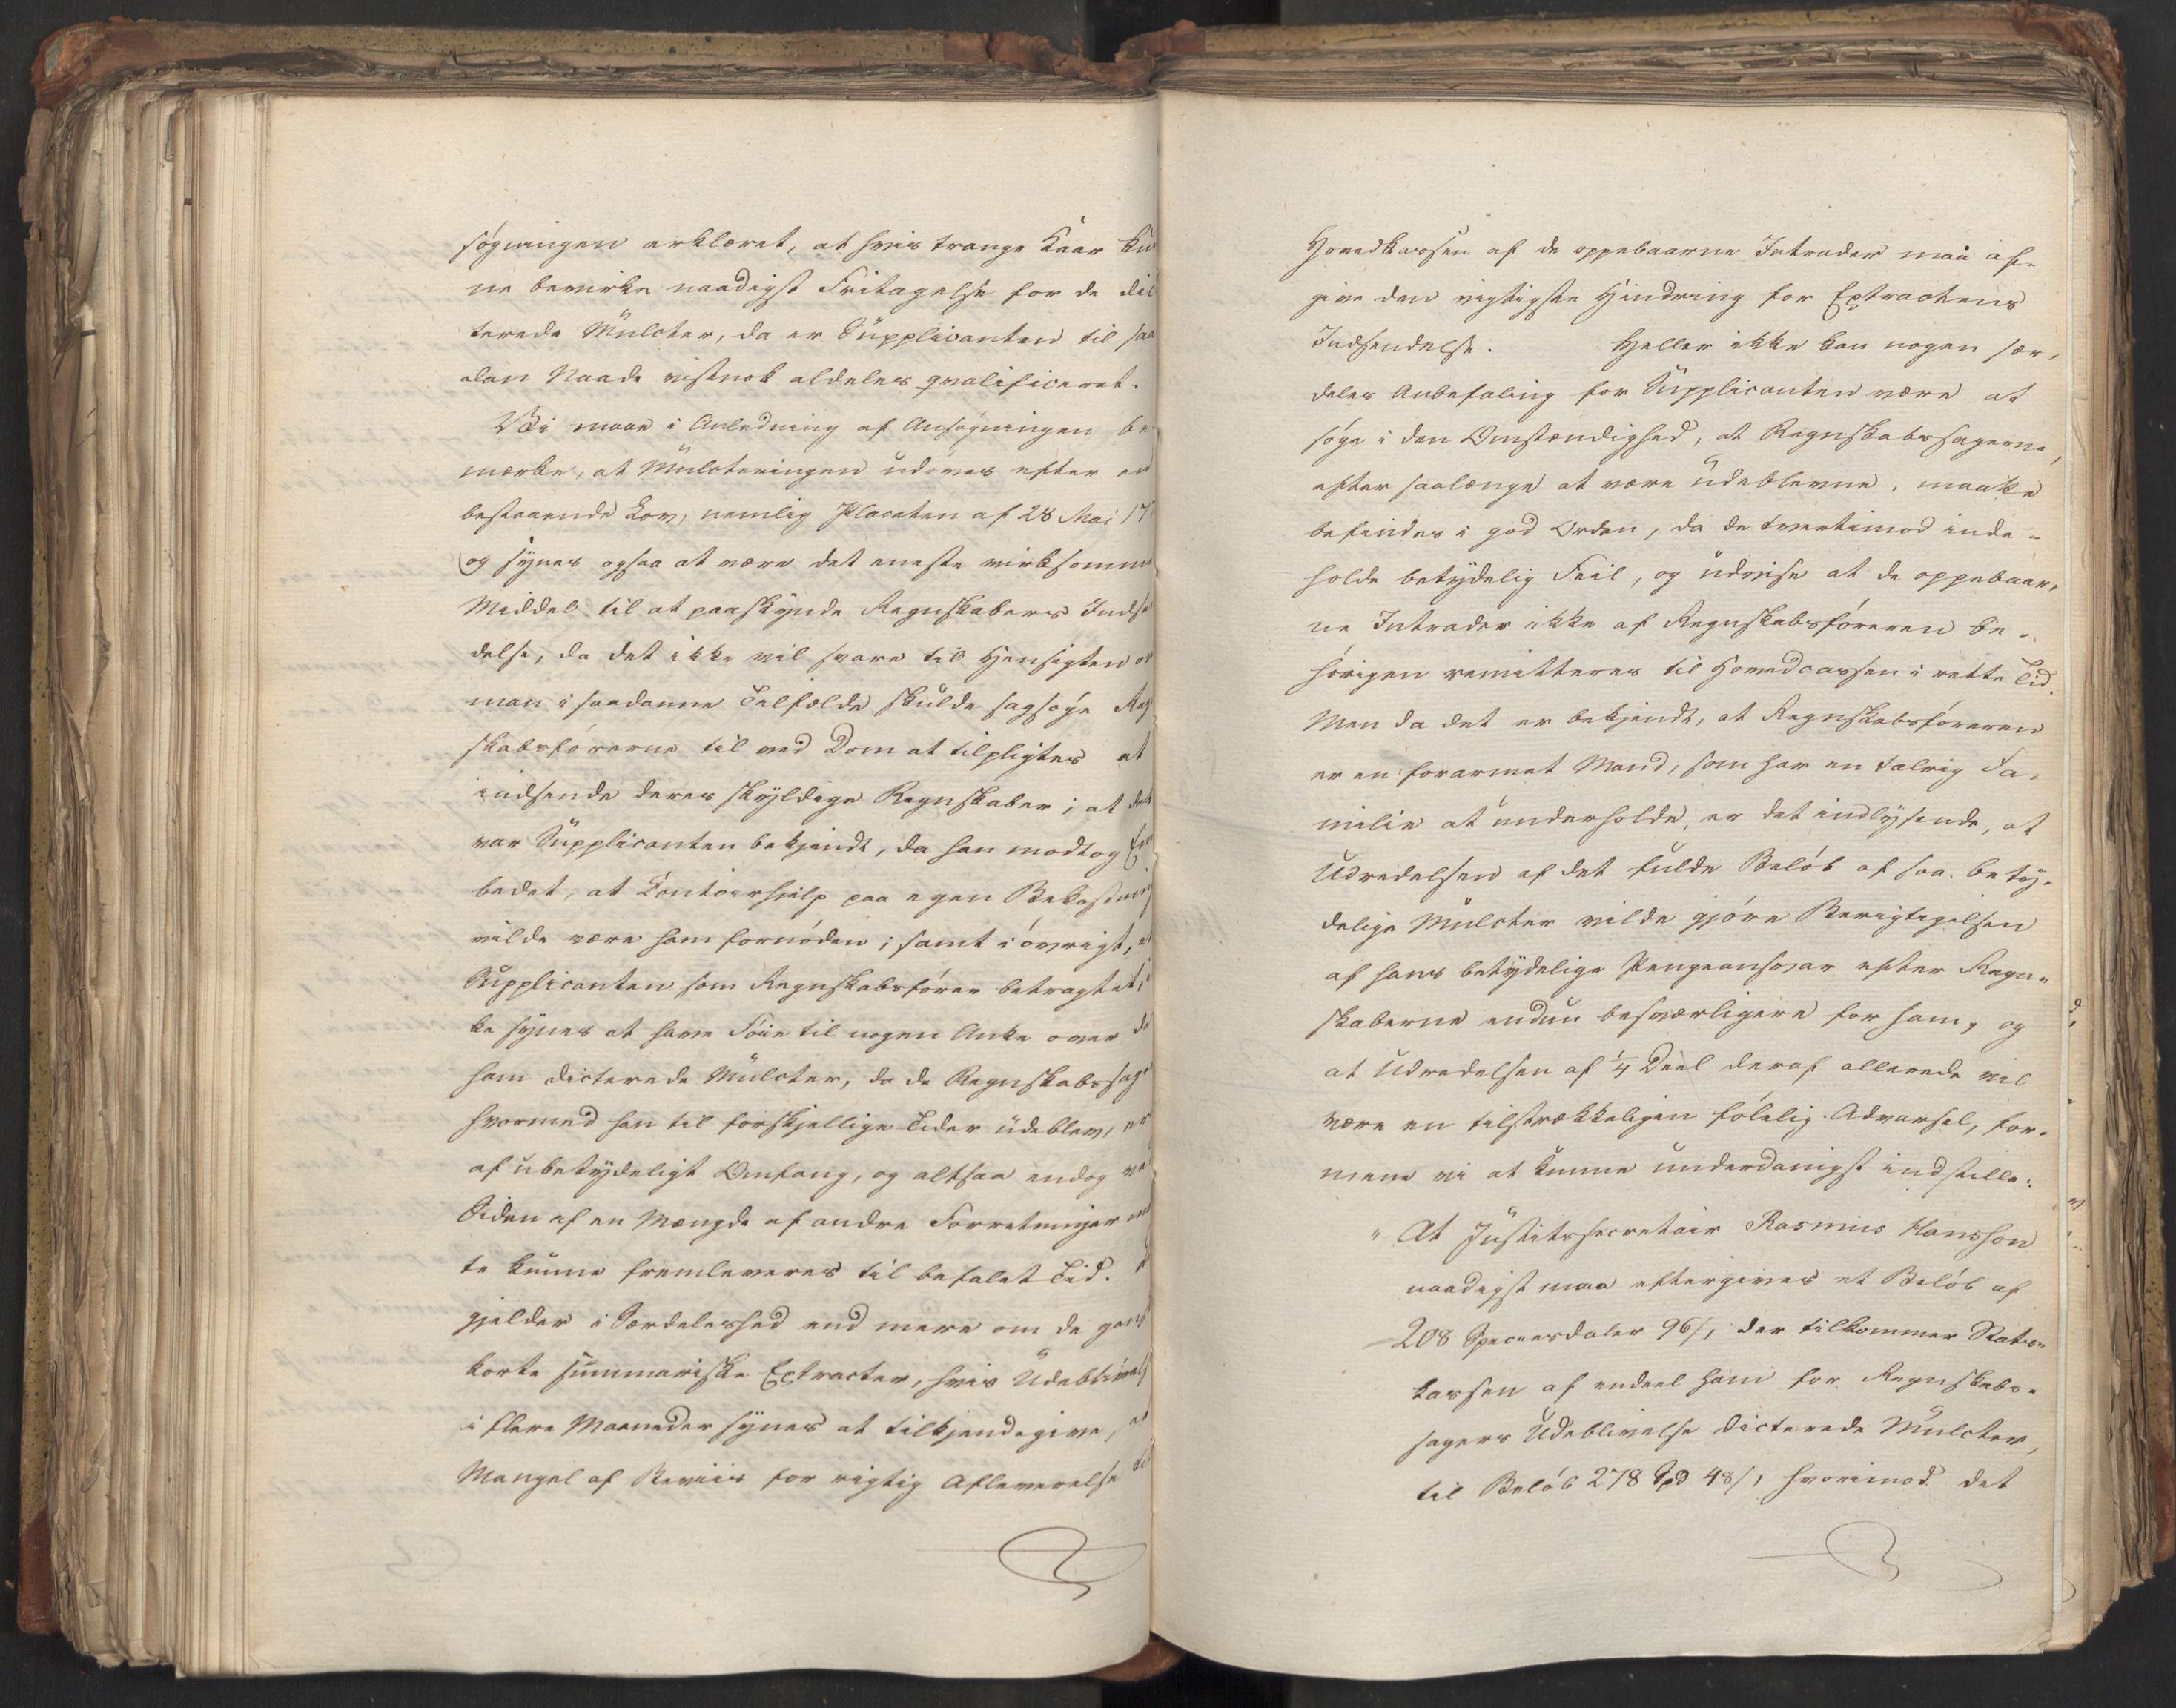 søgningen erklæret, at hvis trange Kaar kun
ne bevirke naadigst Fritagelse for de dic
terede Mulcter, da er Supplicanten til saa
dan Naade vistnok aldeles qvalificeret.
Vi maae i Anledning af Ansøgningen be
mærke, at Mulcteringen udøves efter en
bestaaende Lov, nemlig Placaten af 28 Mai 17
og synes ogsaa at være det eneste virksomme
Middel til at paaskynde Regnskabers Indse
delse, da det ikke vil svare til Hensigten o
man i saadanne Tilfælde skulde sagsøge Reg
skabsførerne til ved Dom at tilpligtes at
indsende deres skyldige Regnskaber; at det
var Supplicanten bekjendt, da han modtog Em
bedet, at Contoirhielp paa egen Bekostning
vilde være ham fornøden; samt i øvrigt, at
Supplicanten som Regnskabsfører betragtet, i
ke synes at have Føie til nogen Anke over de
ham dicterede Mulcter, da de Regnskabssage
hvormed han til forskjellige Tider udeblev, er
af ubetydeligt Omfang, og altsaa endog ve
Siden af en Mængde af andre Forretninger m
te kunne fremleveres til befalet Tid.
gjelder i Særdeleshed end mere om de gans
korte summariske Extracter, hvis Udeblivels
i flere Maaneder synes at tilkjendegive, at
Mangel af Beviis for rigtig Afleverelse til
Hovedkassen af de oppebaarne Intrader maa af-
give den vigtigste Hindring for Extractens
Indsendelse. Heller ikke kan nogen sær-
deles Anbefaling for Supplicanten være at
søge i den Omstændighed, at Regnskabssagerne,
efter saalænge at være udeblevne, maatte
befindes i god Orden, da de tvertimod inde-
holde betydelig Feil, og udvise at de oppebaar-
ne Intrader ikke af Regnskabsføreren be-
hørigen remitteres til Hovedcassen i rette Tid.
Men da det er bekjendt, at Regnskabsføreren
er en forarmet Mand, som har en talrig Fa-
milie at underholde, er det indlysende, at
Udredelsen af det fulde Beløb af saa bety-
delige Mulcter vilde gjøre Berigtigelsen
af hans betydelige Pengeansvar efter Regn-
skaberne endnu besværligere for ham, og
at Udredelsen af 1/4 Deel deraf allerede vil
være en tilstrækkeligen følelig Advarsel, for-
mene vi at kunne underdanigst indstille:
"At Justitssecretair Rasmus Hansson
naadigst maa eftergives et Beløb af
208 Speciesdaler 96 s, der tilkommer Stats-
kassen af endeel ham for Regnskabs-
sagers Udeblivelse dicterede Mulcter,
til Beløb 278 Spd 48 s, hvorimod det